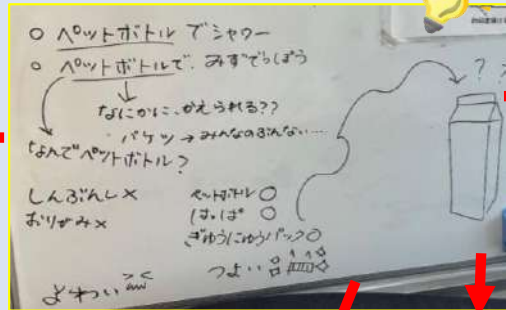 ○ ペットボトルでシャワー
○ ペットボトルで、みずでっぽう
なにかに、かえられる??
バケツ→みんなのぶんない…
なんでペットボトル?
しんぶんし×
おりがみ×
ペットボトル○
はっぱ○
ぎゅうにゅうパック○
つよい
よわい
? ?